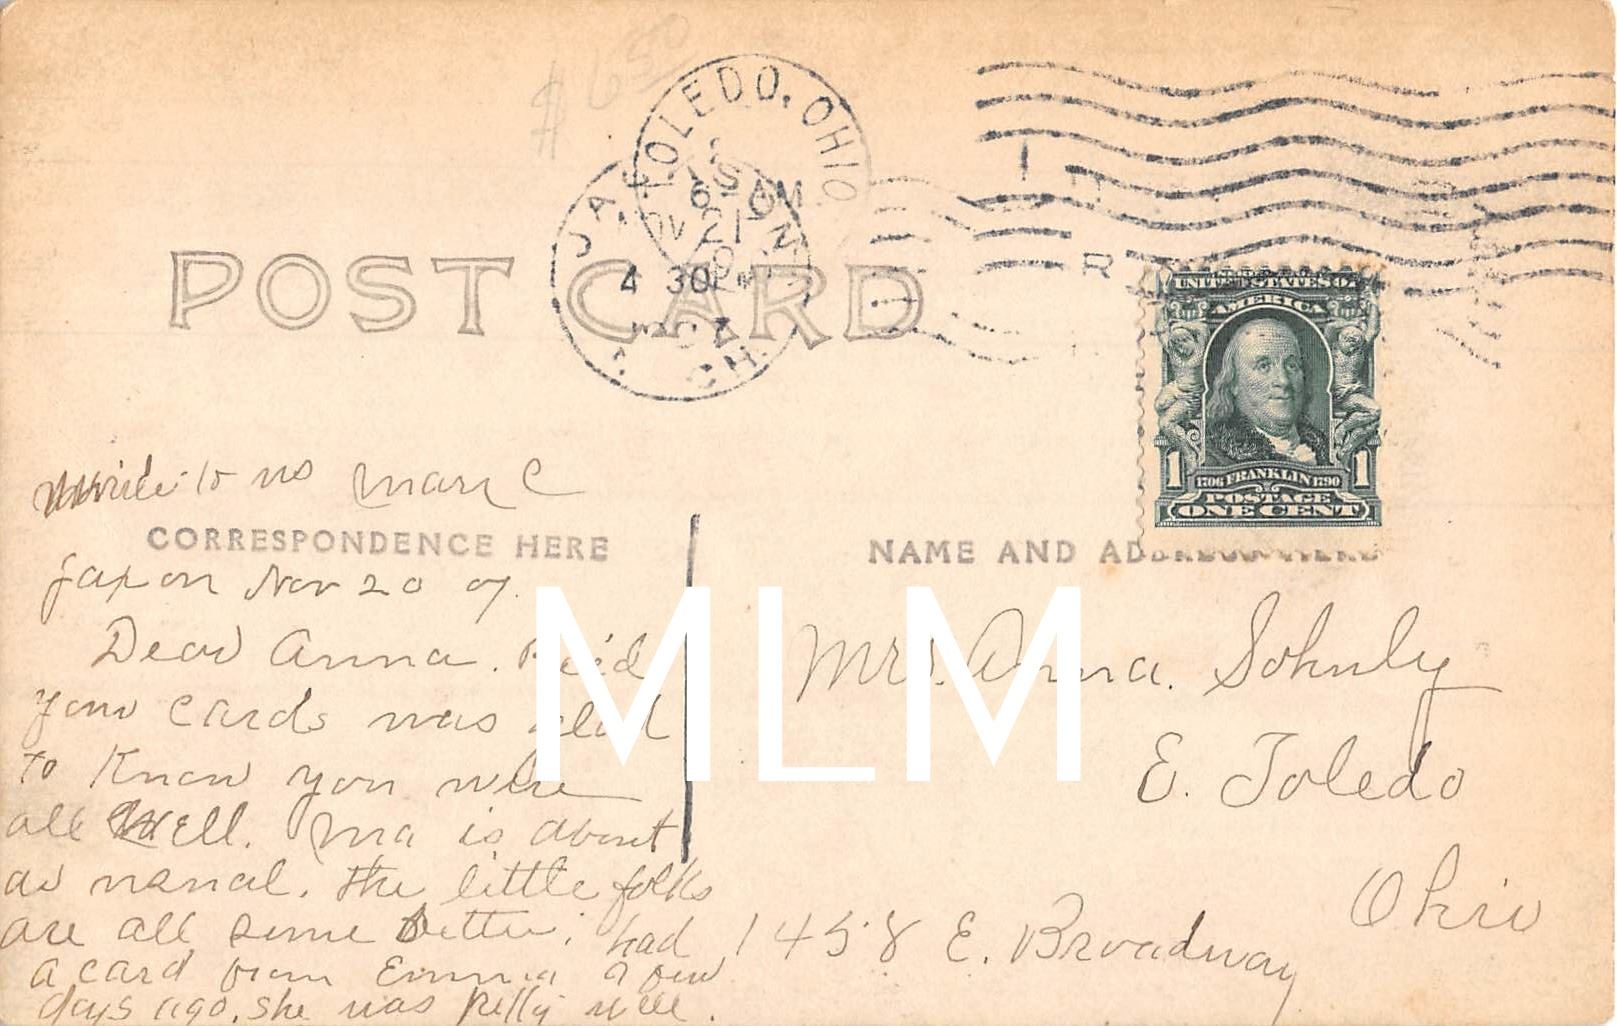 $ 6.50
TOLEDO, OHIO
6 AM
NOV 21
07
JACKSON
4 30 PM
OH
R
POST CARD
UNITED STATES OF
AMERICA
1 1706 FRANKLIN 1790 1
POSTAGE
ONE CENT
write to us Mary C
CORRESPONDENCE HERE
Jaxon Nov 20 07.
Dear Anna. Rec'd
your cards was glad
to Know you were
all Well. Ma is about
as usual. the little folks
are all some better. had
a card from Emma a few
days ago. she was pretty well.
NAME AND ADDRESS HERE
Mrs. Anna.
E. Toledo
Ohio
1458 E. Broadway
MLM